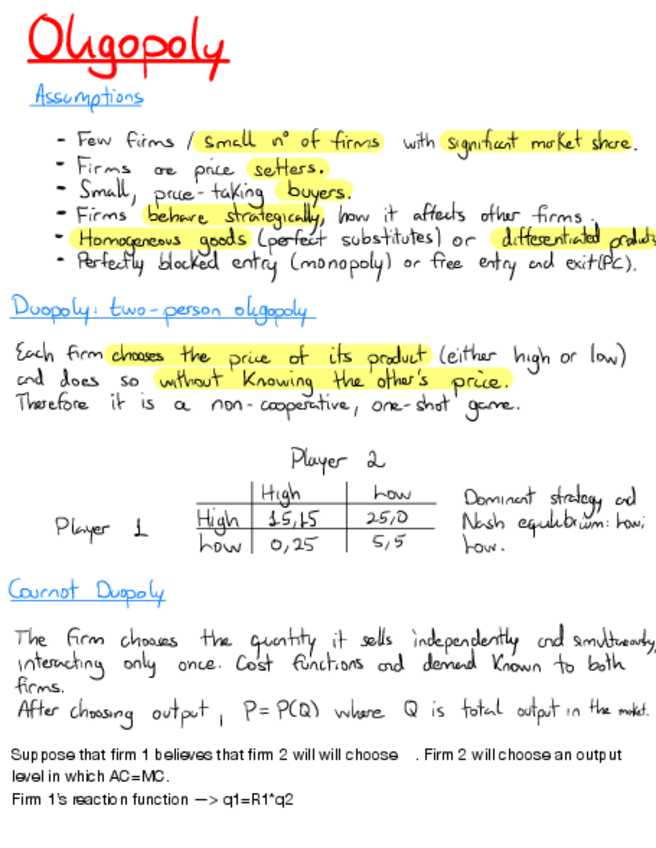 Oligopoly
Assumptions
- Few firms / small nº of firms with significant market share.
- Firms are price setters.
- Small, price-taking buyers.
- Firms behave strategically, how it affects other firms.
- Homogeneous goods (perfect substitutes) or differentiated products
- Perfectly blocked entry (monopoly) or free entry and exit (PC).
Duopoly: two-person oligopoly
Each firm chooses the price of its product (either high or low)
and does so without knowing the other's price.
Therefore it is a non-cooperative, one-shot game.
Player 2
High Low
Player 1
High 15,15 25,0
Low 0,25 5,5
Dominant strategy and
Nash equilibrium: Low;
Low.
Cournot Duopoly
The firm chooses the quantity it sells independently and simultaneously,
interacting only once. Cost functions and demand known to both
firms.
After choosing output, P=P(Q) where Q is total output in the market.
Suppose that firm 1 believes that firm 2 will will choose . Firm 2 will choose an output
level in which AC=MC.
Firm 1's reaction function —> q1=R1*q2